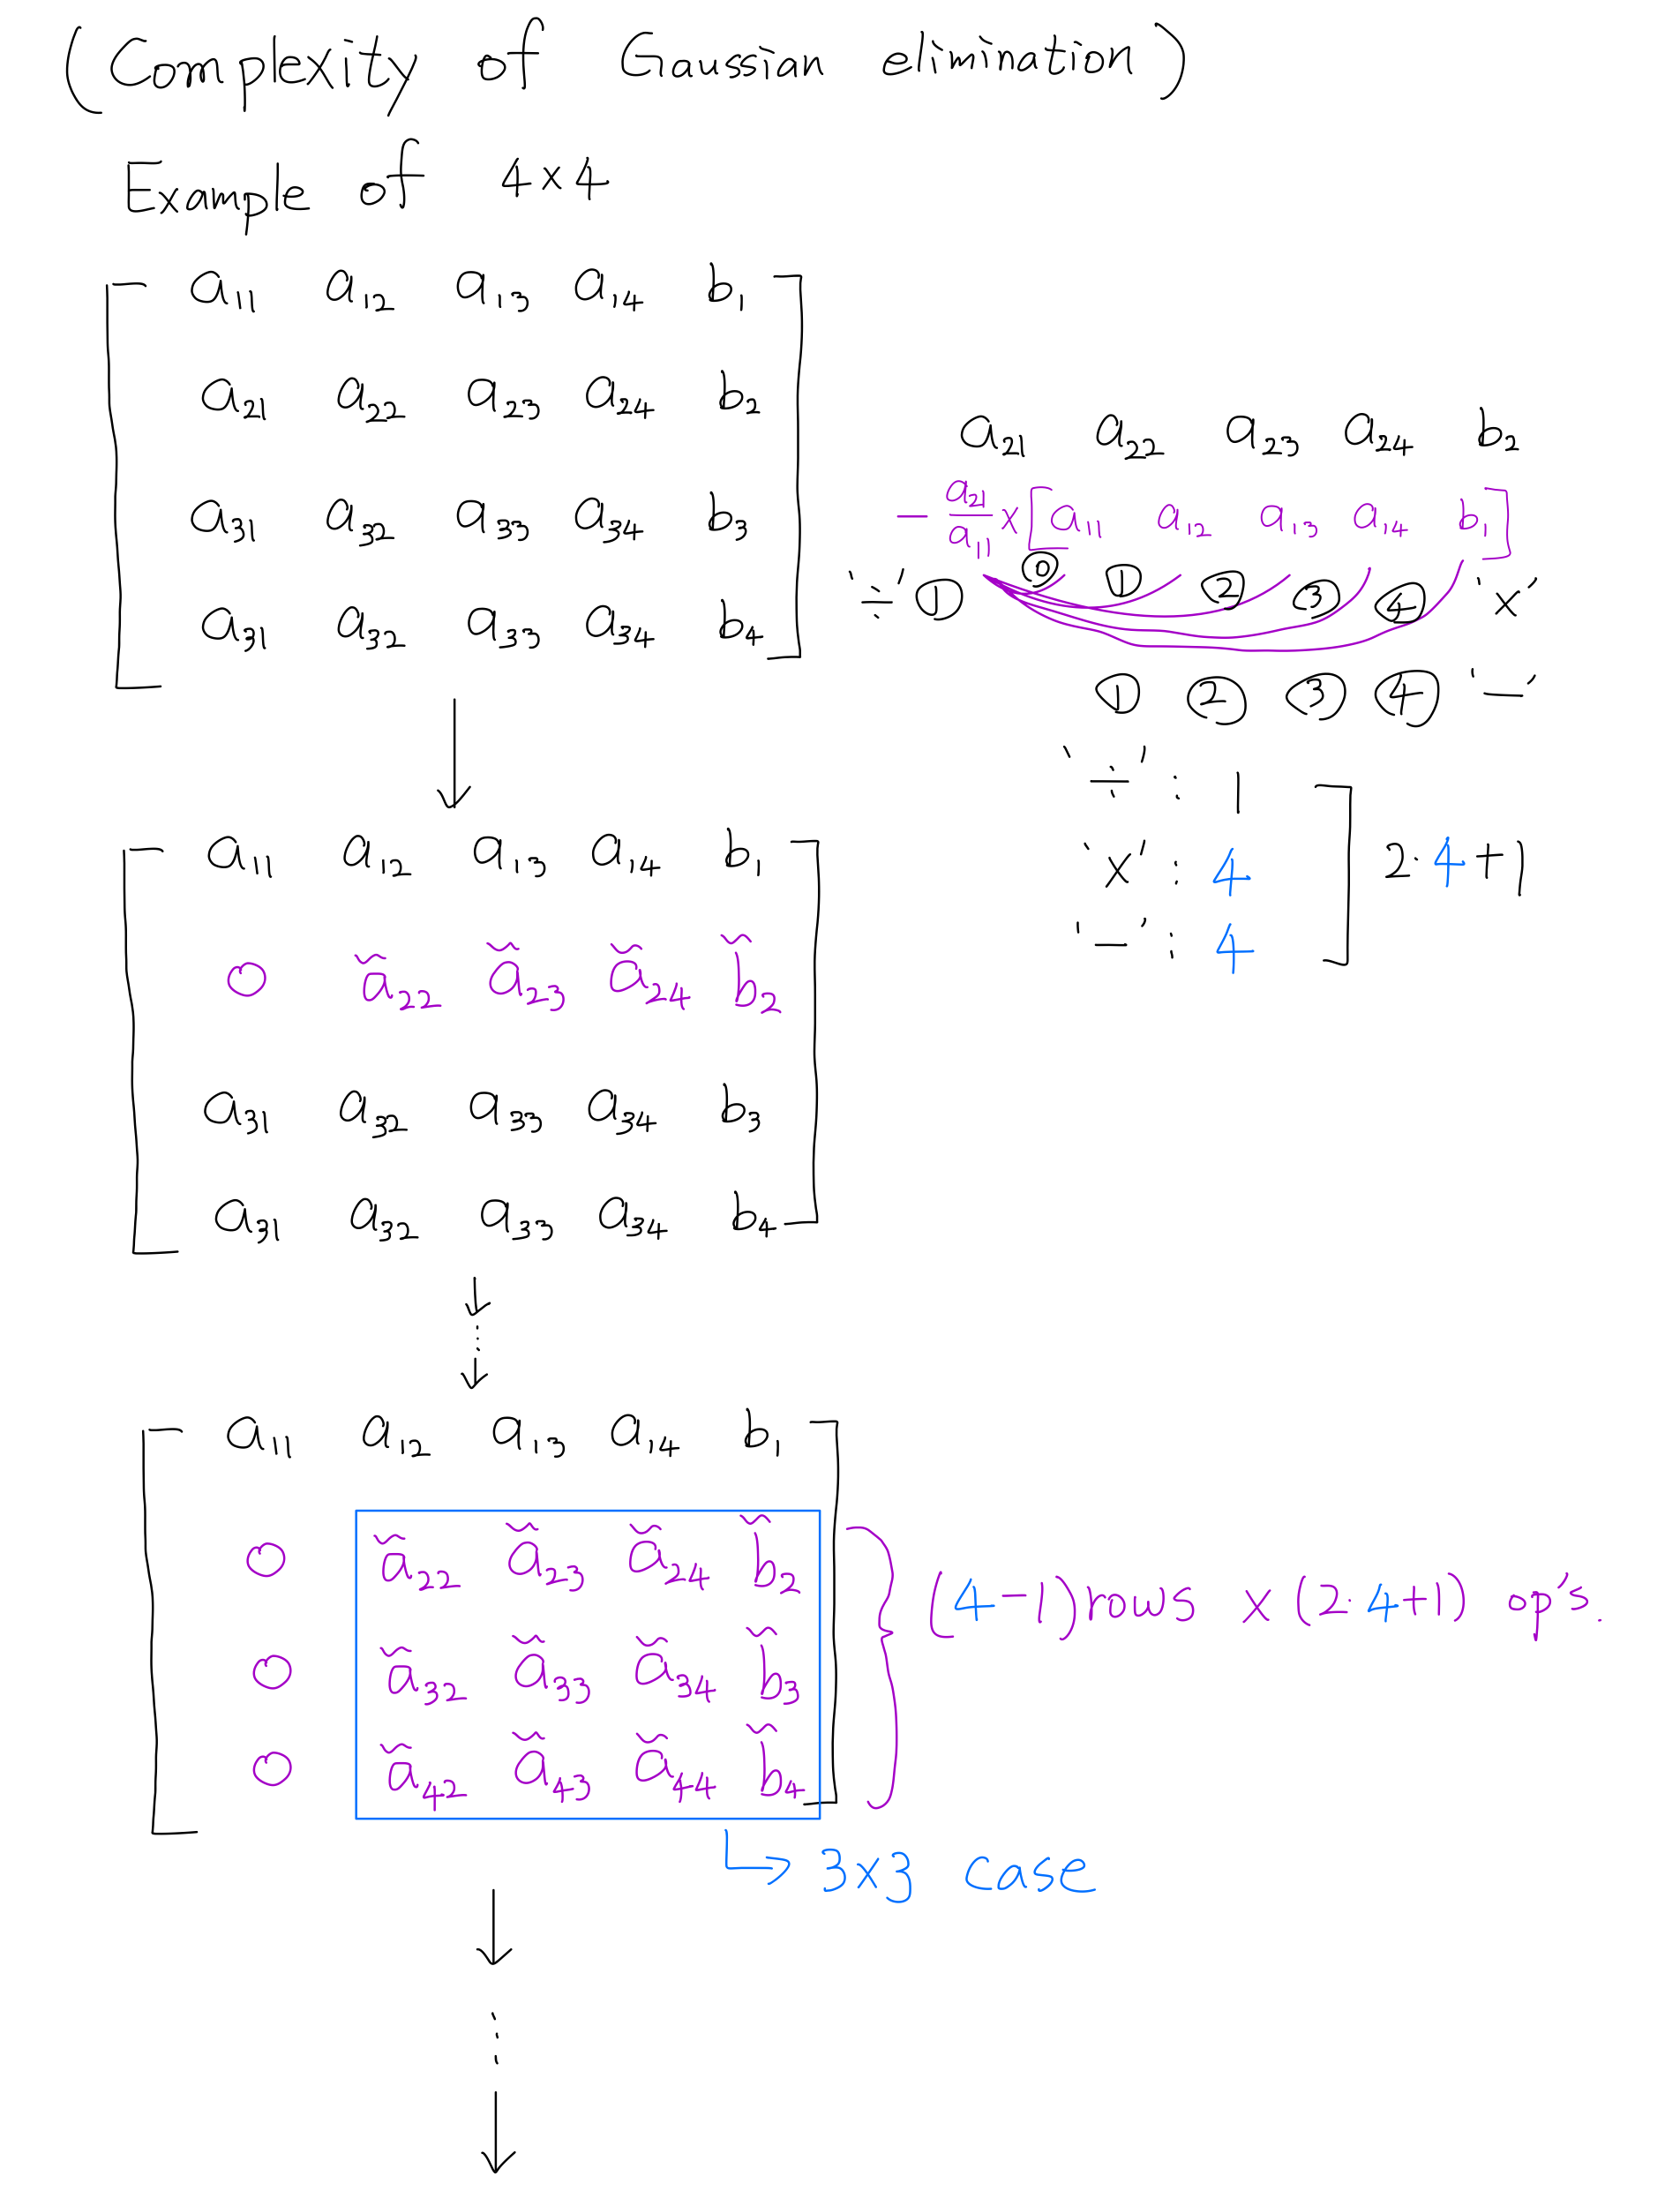 (Complexity of Gaussian elimination)
Example of 4×4
a₁₁ a₁₂ a₁₃ a₁₄ b₁
a₂₁ a₂₂ a₂₃ a₂₄ b₂
a₃₁ a₃₂ a₃₃ a₃₄ b₃
a₃₁ a₃₂ a₃₃ a₃₄ b₄
a₂₁ a₂₂ a₂₃ a₂₄ b₂
- a₂₁/a₁₁ × [a₁₁ a₁₂ a₁₃ a₁₄ b₁]
'÷' ① ⓪ ① ② ③ ④ '×'
① ② ③ ④ '−'
'÷' : 1
'×' : 4 ] 2·4+1
'−' : 4
a₁₁ a₁₂ a₁₃ a₁₄ b₁
0 ã₂₂ ã₂₃ ã₂₄ b̃₂
a₃₁ a₃₂ a₃₃ a₃₄ b₃
a₃₁ a₃₂ a₃₃ a₃₄ b₄
a₁₁ a₁₂ a₁₃ a₁₄ b₁
0 ã₂₂ ã₂₃ ã₂₄ b̃₂
0 ã₃₂ ã₃₃ ã₃₄ b̃₃
0 ã₄₂ ã₄₃ ã₄₄ b̃₄
} (4−1)rows × (2·4+1) op's.
↳ 3×3 case